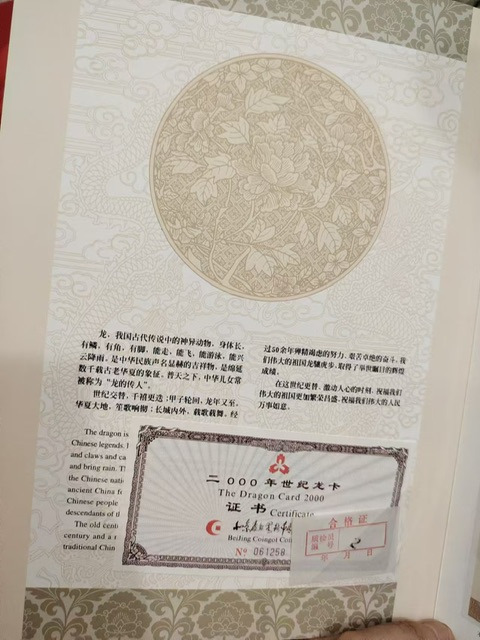 龙，我国古代传说中的神异动物，身体长，
有鳞，有角，有脚，能走，能飞，能游泳，能兴
云降雨。是中华民族声名显赫的吉祥物，是绵延
数千载古老华夏的象征。普天之下，中华儿女常
被称为“龙的传人”。
世纪交替，千禧更迭；甲子轮回，龙年又至。
华夏大地，笙歌响彻；长城内外，载歌载舞。经
过50余年殚精竭虑的努力，艰苦卓绝的奋斗，我
们伟大的祖国龙骧虎步，取得了举世瞩目的辉煌
成绩。
在这世纪更替、激动人心的时刻，祝福我们
伟大的祖国更加繁荣昌盛，祝福我们伟大的人民
万事如意。
The dragon is
Chinese legends. I
and claws and ca
and bring rain. T
the Chinese nati
ancient China f
Chinese people
descendants of th
The old cent
century and a
traditional Chin
二000年世纪龙卡
The Dragon Card 2000
证书 Certificate
BeiJing Coingot Co
Nº 061258
合格证
检验员
编号 2
年 月 日